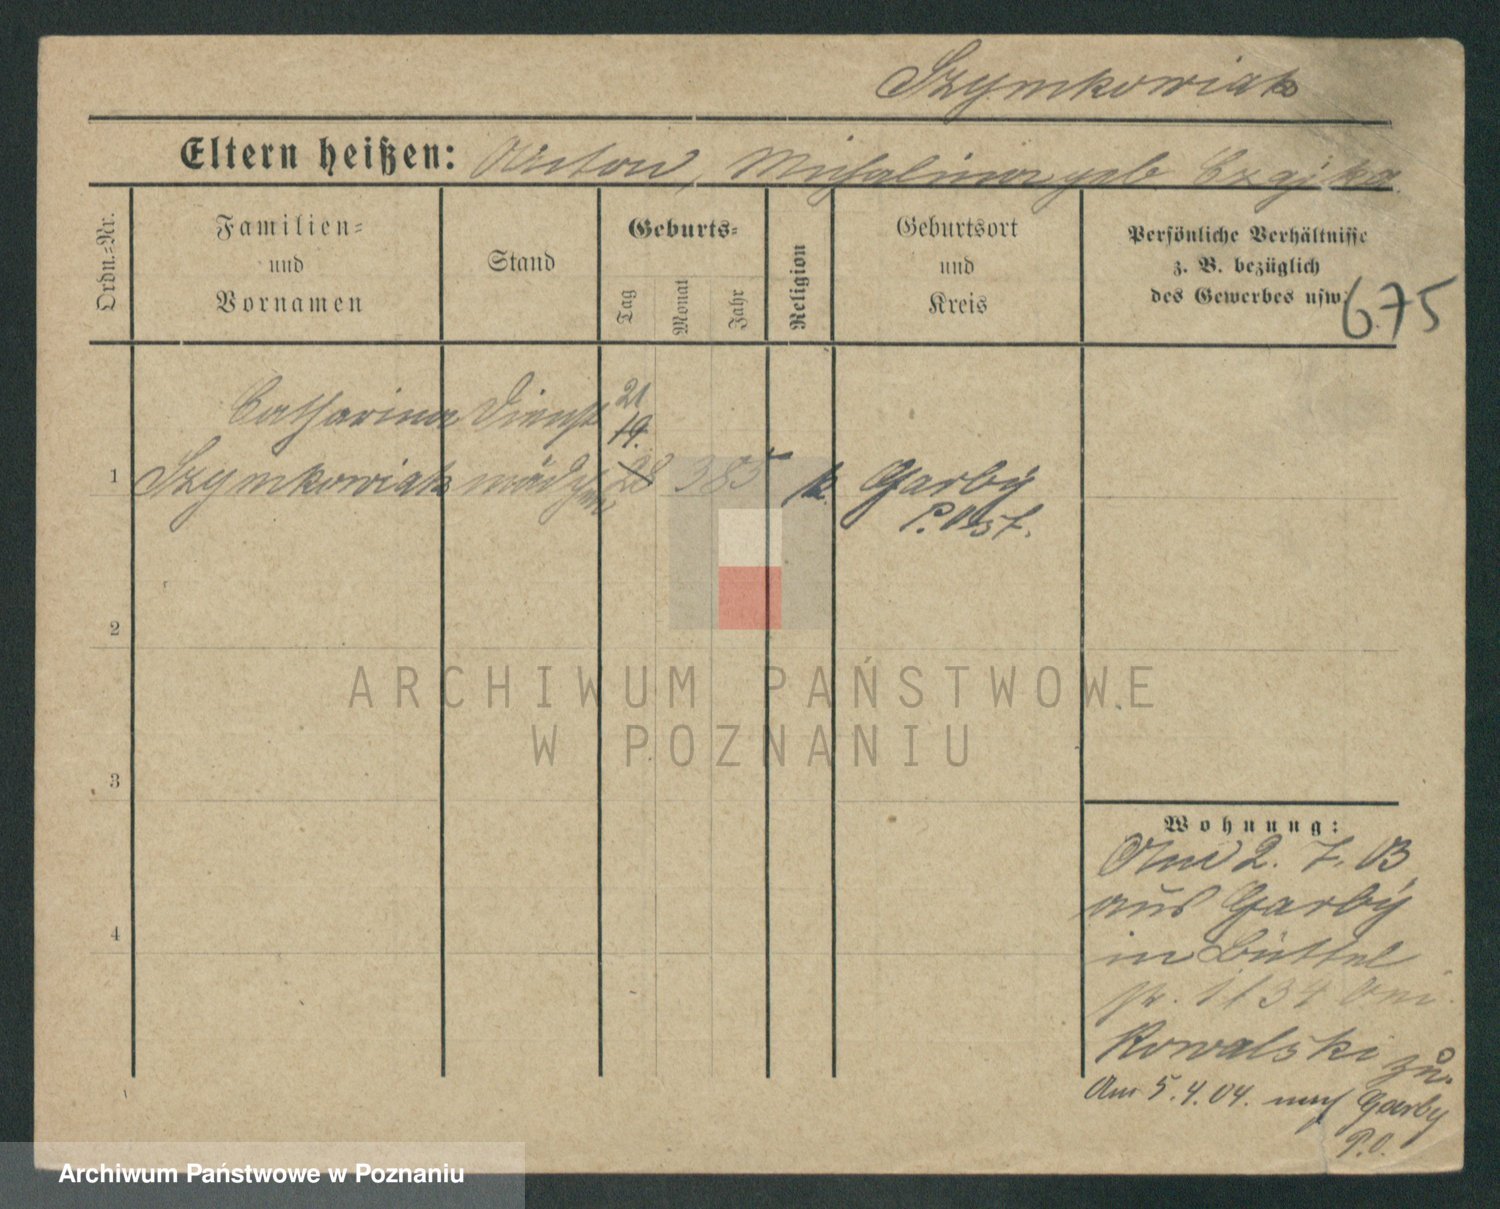 Szymkowiak
Eltern heißen: Anton, Michalina geb. Czajka
Ordn.-Nr.
Familien- und Vornamen
Stand
Geburts-
Tag
Monat
Jahr
Religion
Geburtsort und Kreis
Persönliche Verhältnisse
z. B. bezüglich
des Gewerbes usw.
675
Catharina Dienst 21
19.
1 Szymkowiak mädchen 28 3 85 k Garby
P. Ost.
2
3
4
Wohnung:
Am 2. 7. 03
aus Garby
in Büttel
str. bei
Kowalski zu.
Am 5.4.04. nach Garby
P.O.
ARCHIWUM PAŃSTWOWE
W POZNANIU
Archiwum Państwowe w Poznaniu